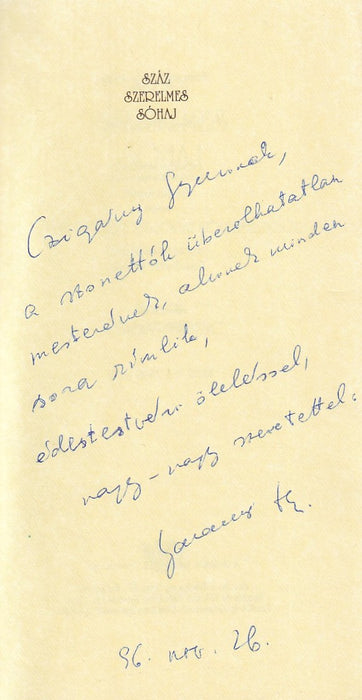 SZÁZ
SZERELMES
SÓHAJ
Czigány Gyurinak,
a szonettók überolhatatlan
mesterének, akinek minden
sora rímlik,
édestestvéri öleléssel,
nagy-nagy szeretettel:
Garanyi
96. nov. 26.